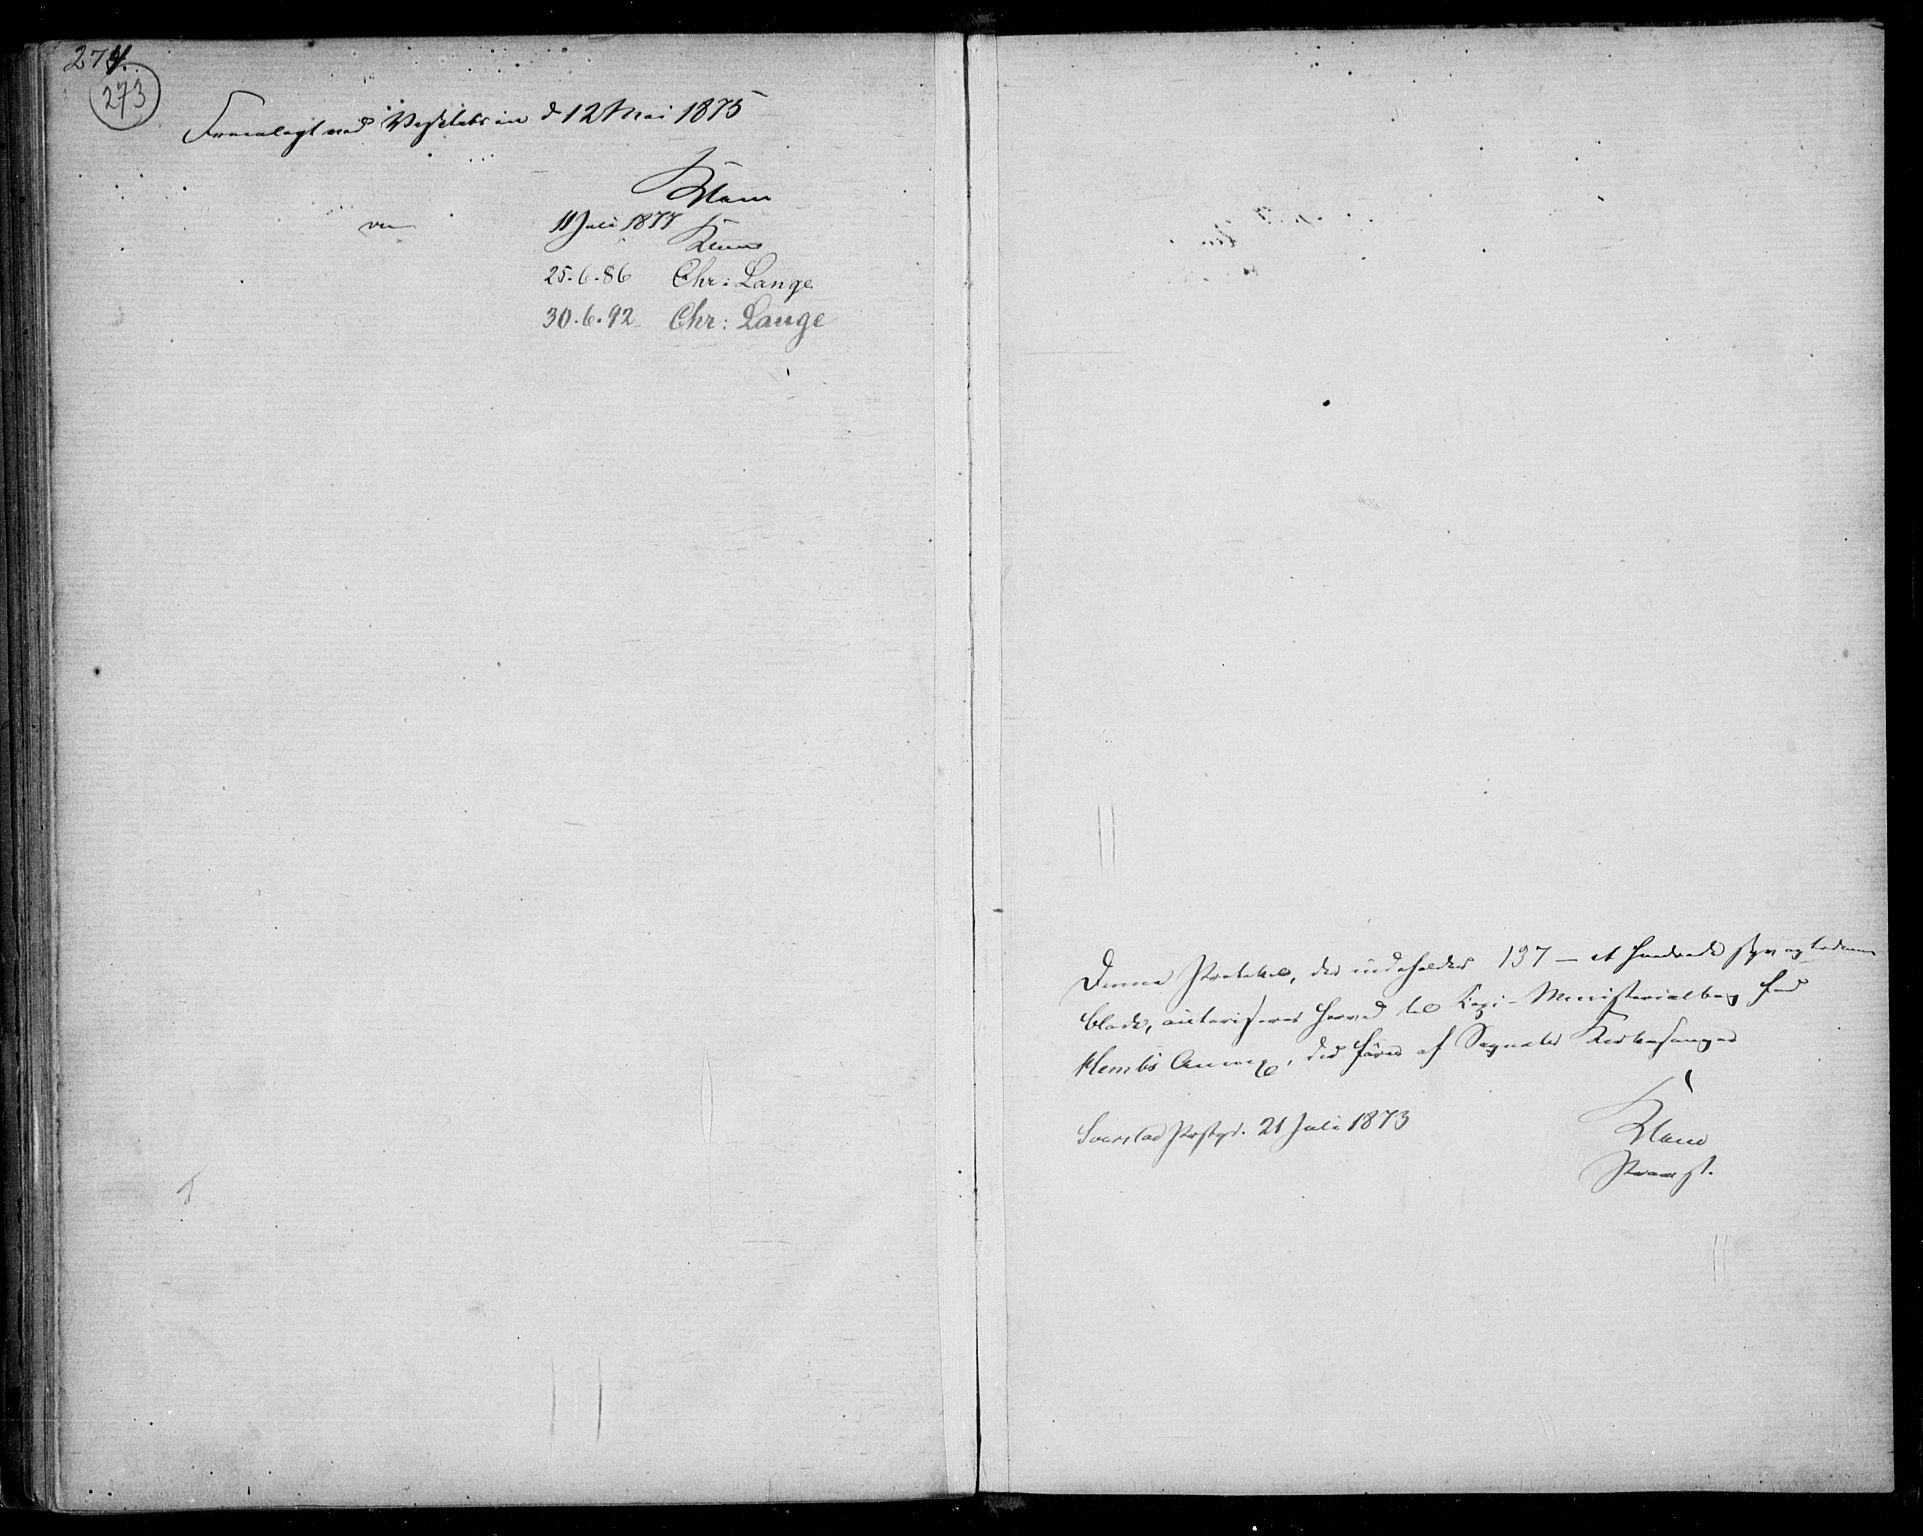 274.
273
Fremlagt ved Visitatsen d 12 Mai 1875
Klem
11 Juli 1877
25.6.86 Chr: Lange
30.6.92 Chr: Lange
Denne Protokol, der indeholder 137 – et hundrede syv og tredive
blade, autoriseres herved til Kopi-Ministerialbog for
Hem's Annex, der føres af Sognets Kirkesanger
Svarstad Prstgd. 21 Juli 1873
Provst.